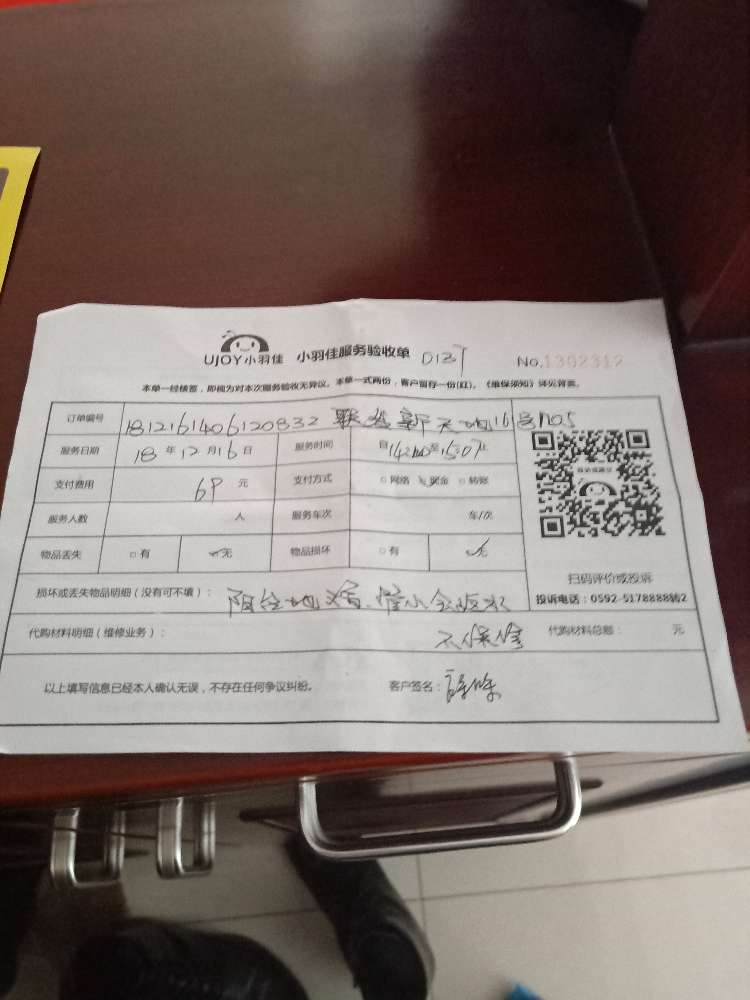 UJOY小羽佳 小羽佳服务验收单 D137 No.1302312
本单一经接签，即视为对本次服务验收无异议。本单一式两份，客户留存一份(红)。《维保须知》详见背面。
订单编号 1812161406120832 联发新天地16号1705
服务日期 18年12月16日 服务时间 自14:00至15:07止
支付费用 69元 支付方式 □网络 □现金 □转账
服务人数 人 服务车次 车/次
物品丢失 □有 □无 物品损坏 □有 □无
扫码评价或投诉
损坏或丢失物品明细（没有可不填）： 阳台地漏 管小会返水
投诉电话：0592-5178888转2
代购材料明细（维修业务）： 不保修 代购材料总额： 元
以上填写信息已经本人确认无误，不存在任何争议纠纷。 客户签名：